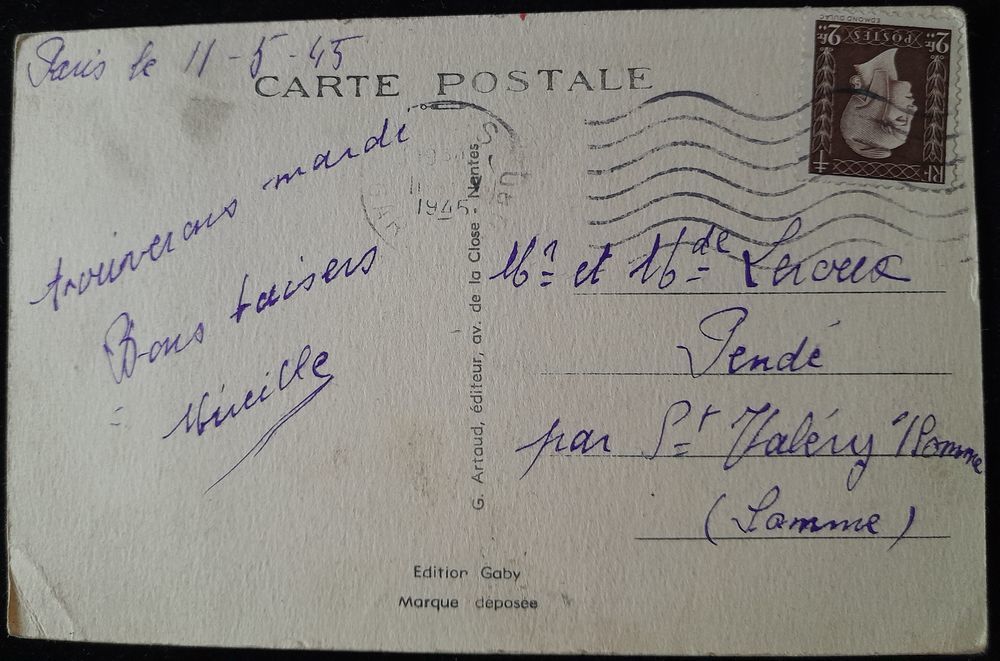 Paris le 11-5-45
CARTE POSTALE
trouverons mardi
Bons baisers
Mireille
1945
EDMOND DULAC
2F
POSTES
2F
RF
G. Artaud, éditeur, av. de la Close - Nantes
Mr et Mde Leroux
Pendé
par St Valéry s/Somme
(Somme)
Edition Gaby
Marque déposée